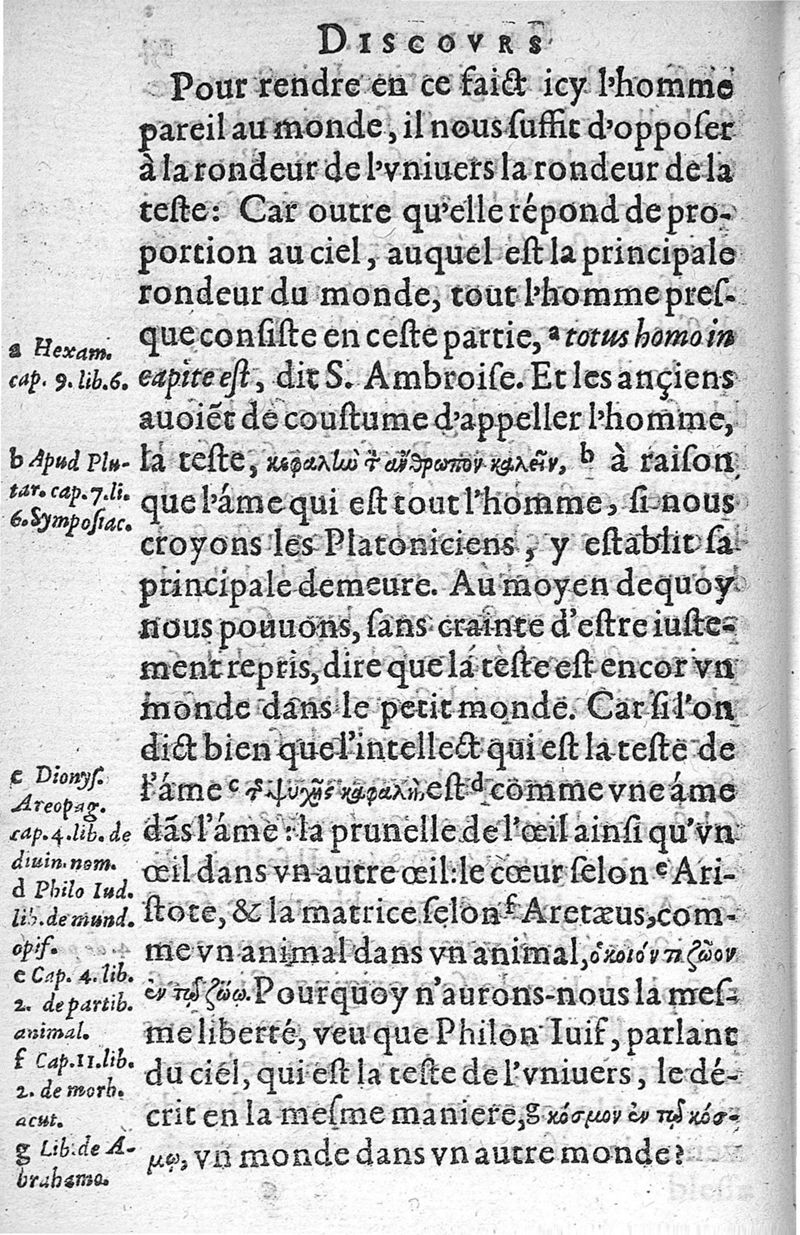 DISCOVRS
Pour rendre en ce faict icy l'homme
pareil au monde, il nous suffit d'opposer
à la rondeur de l'vniuers la rondeur de la
teste: Car outre qu'elle répond de pro-
portion au ciel, auquel est la principale
rondeur du monde, tout l'homme pres-
que consiste en ceste partie, ᵃ totus homo in
capite est, dit S. Ambroise. Et les ançiens
auoiẽt de coustume d'appeller l'homme,
la teste, κεφαλὼ τ̀ ἄνθρωπον καλεῖν, ᵇ à raison
que l'áme qui est tout l'homme, si nous
croyons les Platoniciens, y establit sa
principale demeure. Au moyen dequoy
nous pouuons, sans crainte d'estre iuste-
ment repris, dire que la teste est encor vn
monde dans le petit monde. Car si l'on
dict bien que l'intellect qui est la teste de
l'áme ᶜ τ̃ ψυχῆς κεφαλὴ, est ᵈ comme vne áme
dãs l'áme: la prunelle de l'œil ainsi qu'vn
œil dans vn autre œil: le cœur selon ᵉ Ari-
stote, & la matrice selon ᶠ Aretæus, com-
me vn animal dans vn animal, ὁκοιόν τι ζῶον
ἐν τῷ ζώῳ. Pourquoy n'aurons-nous la mes-
me liberté, veu que Philon Iuif, parlant
du ciel, qui est la teste de l'vniuers, le dé-
crit en la mesme maniere, g κόσμον ἐν τῷ κόσ-
μῳ, vn monde dans vn autre monde?
a Hexam.
cap. 9. lib. 6.
b Apud Plu-
tar. cap. 7. li.
6. Symposiac.
c Dionys.
Areopag.
cap. 4. lib. de
diuin. nom.
d Philo Iud.
lib. de mund.
opif.
e Cap. 4. lib.
2. de partib.
animal.
f Cap. 11. lib.
2. de morb.
acut.
g Lib. de A-
brahamo.